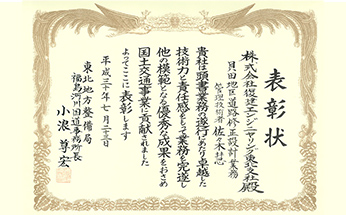 表彰状
株式会社復建エンジニヤリング東北支社殿
月田地区道路修正設計業務
管理技術者 佐々木
貴社は頭書業務の遂行にあたり卓越した
技術力と責任感をもって業務を完遂し
他の模範となる優秀な成果をおさめ
国土交通事業に貢献されました
よってここに表彰します
平成三十年七月二十三日
東北地方整備局
福島河川国道事務所長
小浪尊宏